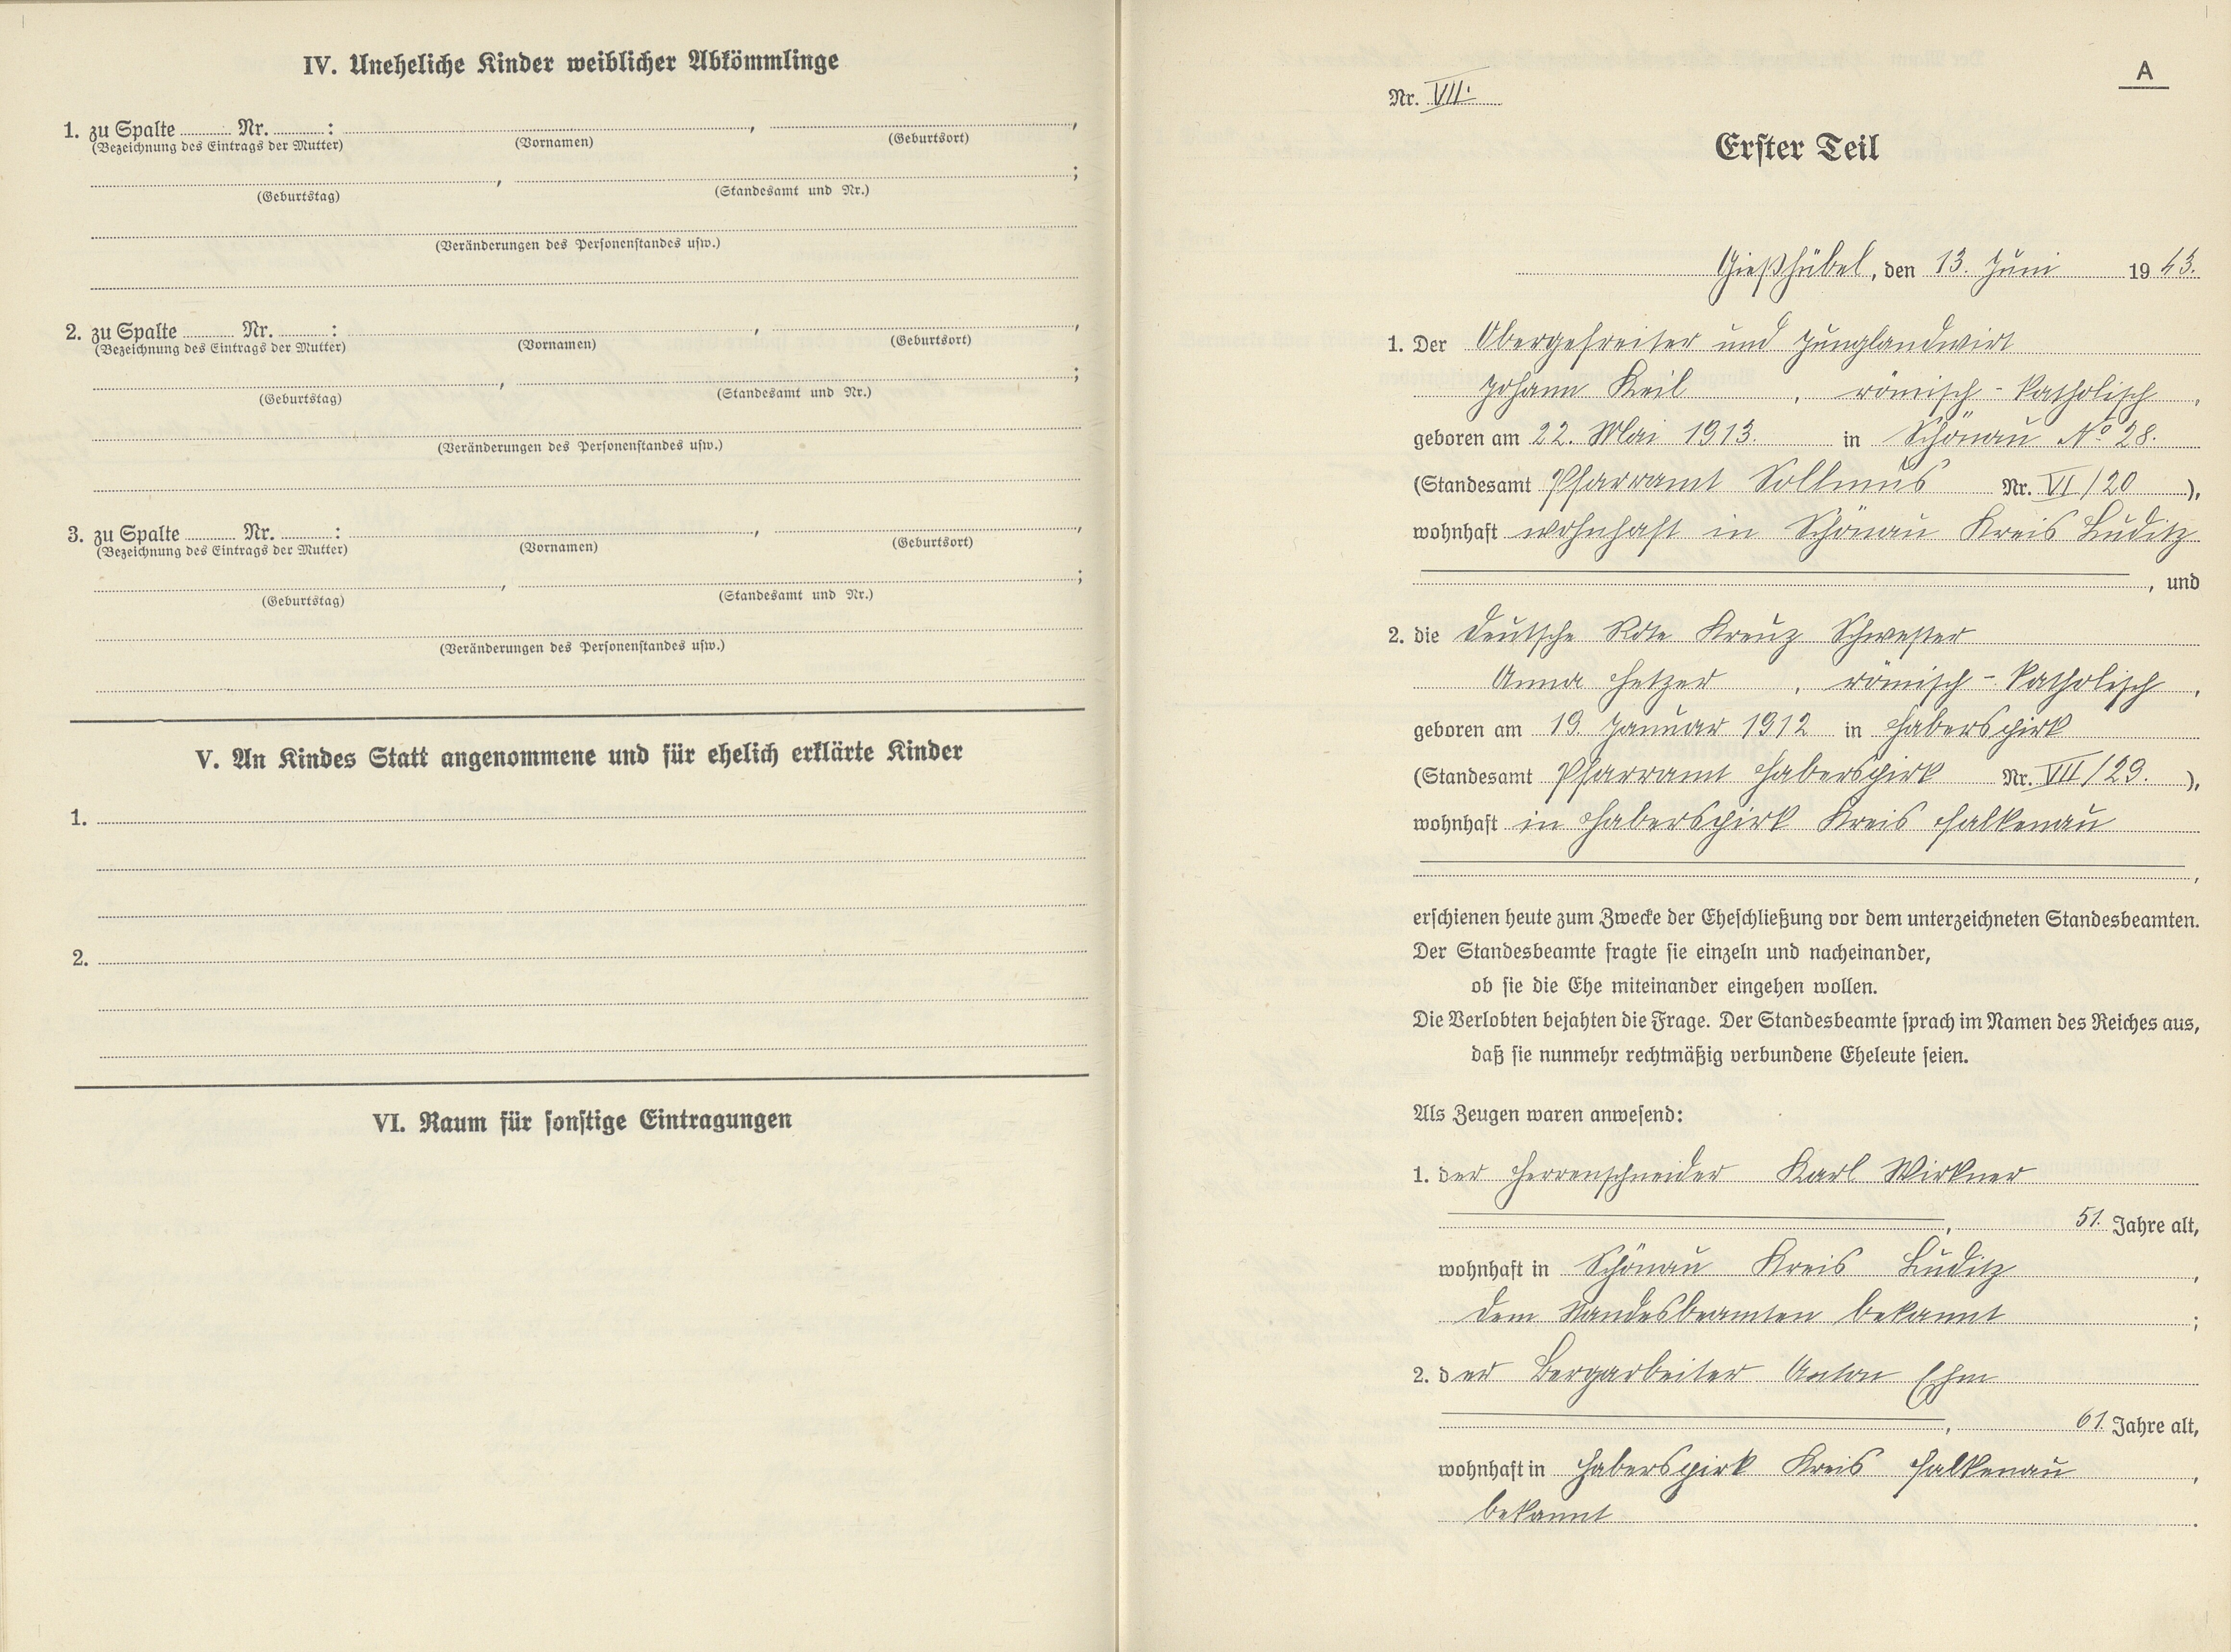 IV. Uneheliche Kinder weiblicher Abkömmlinge
1. zu Spalte ........ Nr. ........ : ........ , ........ ,
(Bezeichnung des Eintrags der Mutter) (Vornamen) (Geburtsort)
........ , ........ ;
(Geburtstag) (Standesamt und Nr.)
(Veränderungen des Personenstandes usw.)
2. zu Spalte ........ Nr. ........ : ........ , ........ ,
(Bezeichnung des Eintrags der Mutter) (Vornamen) (Geburtsort)
........ , ........ ;
(Geburtstag) (Standesamt und Nr.)
(Veränderungen des Personenstandes usw.)
3. zu Spalte ........ Nr. ........ : ........ , ........ ,
(Bezeichnung des Eintrags der Mutter) (Vornamen) (Geburtsort)
........ , ........ ;
(Geburtstag) (Standesamt und Nr.)
(Veränderungen des Personenstandes usw.)
V. An Kindes Statt angenommene und für ehelich erklärte Kinder
1.
2.
VI. Raum für sonstige Eintragungen
A
Nr. VII.
Erster Teil
Gießhübel, den 13. Juni 1943.
1. Der Obergefreiter und Junglandwirt
Johann Keil, römisch-katholisch,
geboren am 22. Mai 1913. in Schönau No 28.
(Standesamt Pfarramt Sollmus Nr. VI/20),
wohnhaft wohnhaft in Schönau Kreis Luditz
, und
2. die Deutsche Rote Kreuz Schwester
Anna Hetzer, römisch-katholisch,
geboren am 19. Januar 1912 in Haberspirk
(Standesamt Pfarramt Haberspirk Nr. VII/29.),
wohnhaft in Haberspirk Kreis Falkenau
,
erschienen heute zum Zwecke der Eheschließung vor dem unterzeichneten Standesbeamten.
Der Standesbeamte fragte sie einzeln und nacheinander,
ob sie die Ehe miteinander eingehen wollen.
Die Verlobten bejahten die Frage. Der Standesbeamte sprach im Namen des Reiches aus,
daß sie nunmehr rechtmäßig verbundene Eheleute seien.
Als Zeugen waren anwesend:
1. der Herrenschneider Karl Wirkner
, 51. Jahre alt,
wohnhaft in Schönau Kreis Luditz,
dem Standesbeamten bekannt;
2. der Bergarbeiter Anton Ehm
, 61. Jahre alt,
wohnhaft in Haberspirk Kreis Falkenau,
bekannt.